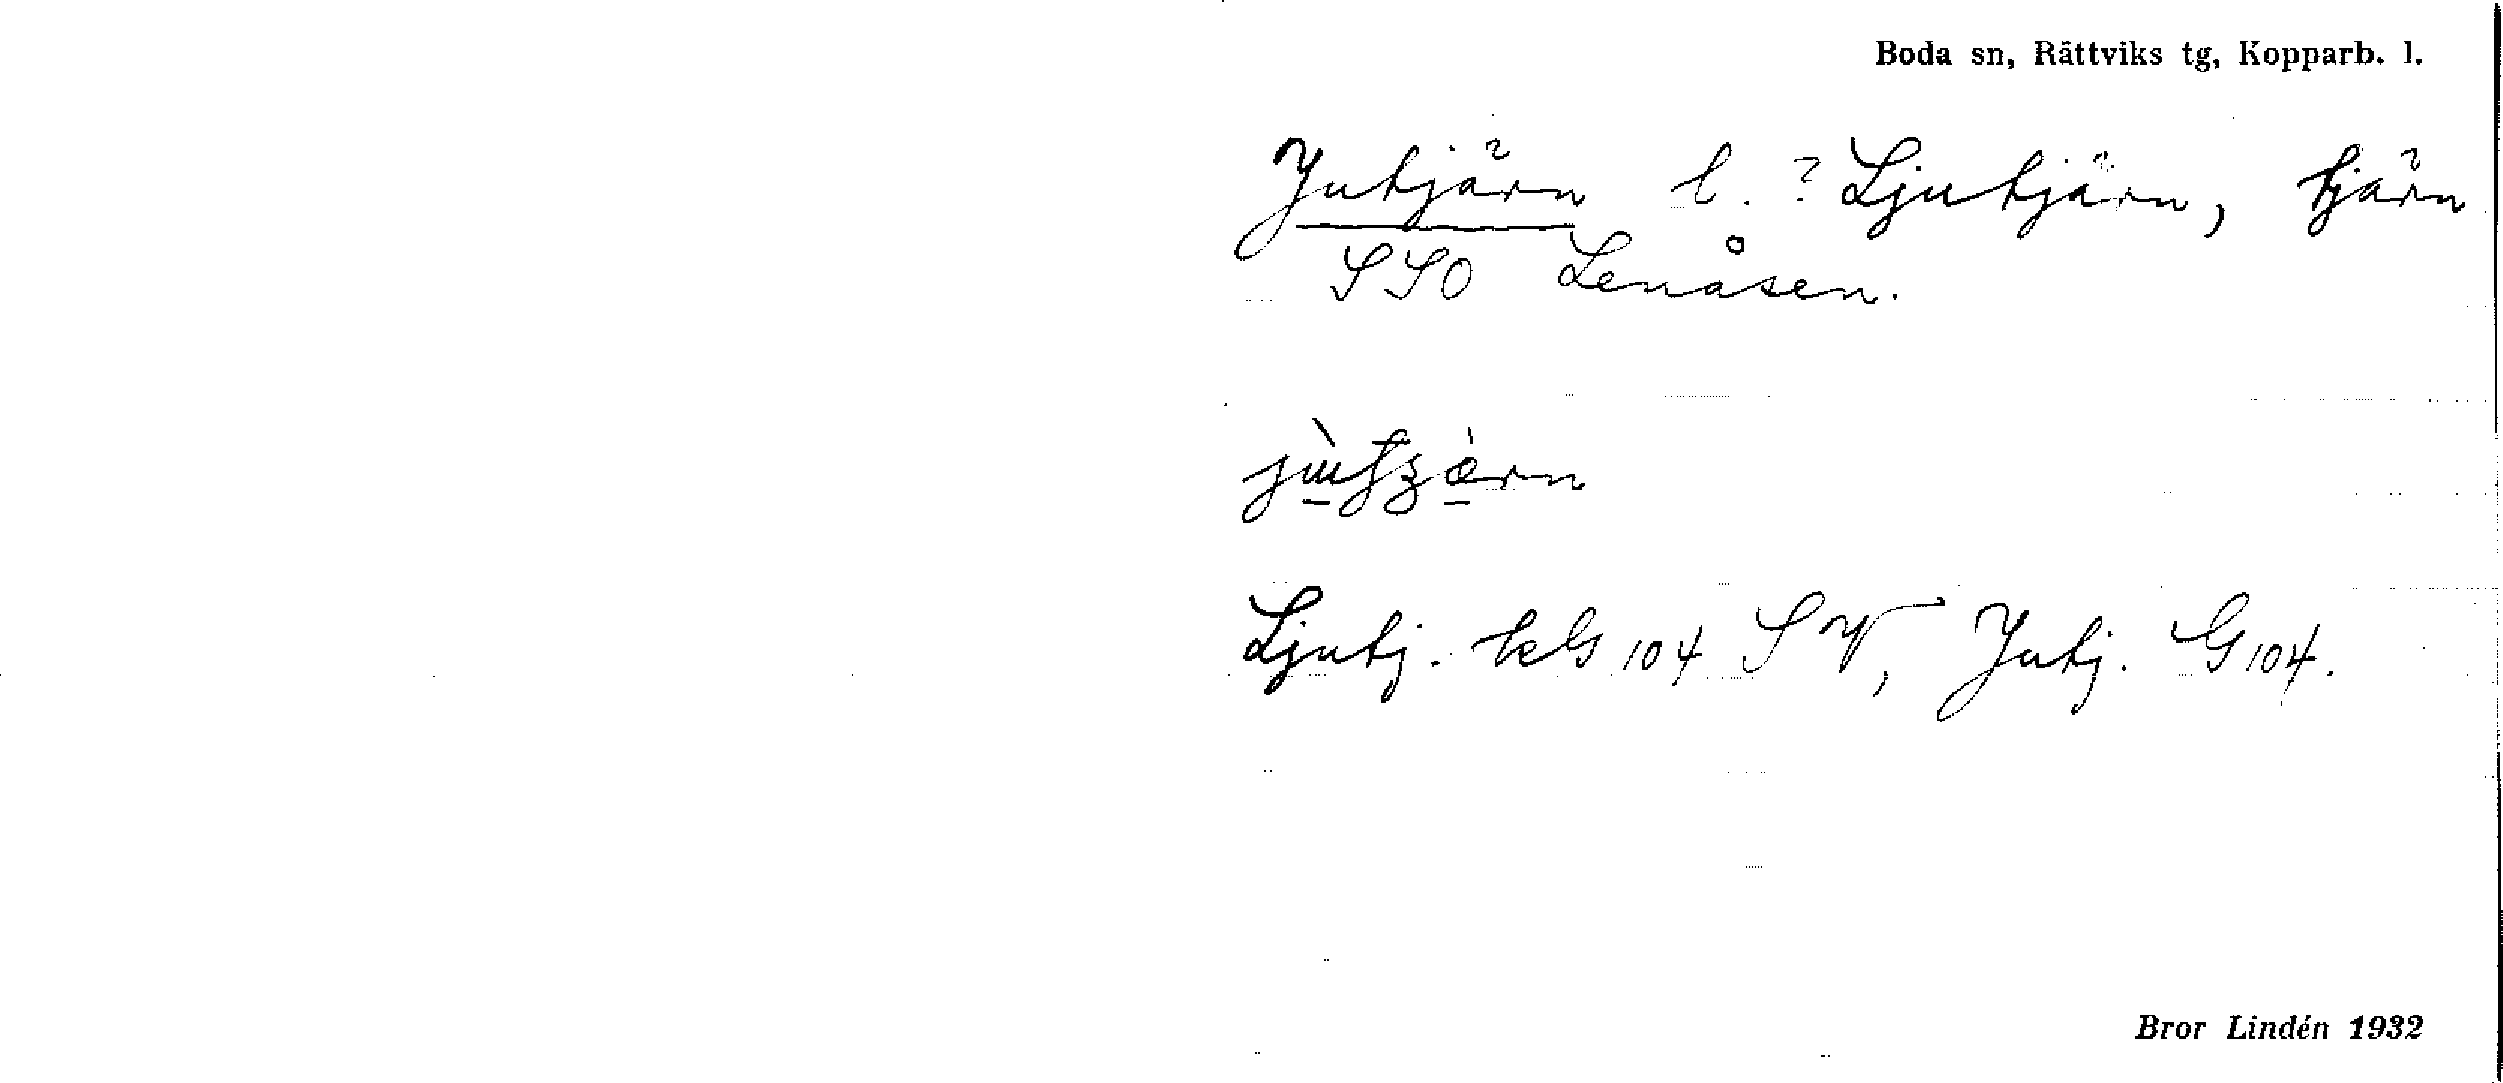 Boda sn, Rättviks tg, Kopparb. l.
Jutjärn l. ? Ljutjärn, tjärn
SSO Lenåsen.
Ljutj. kG 104 SV, Jutj. G 104.
Bror Lindén 1932